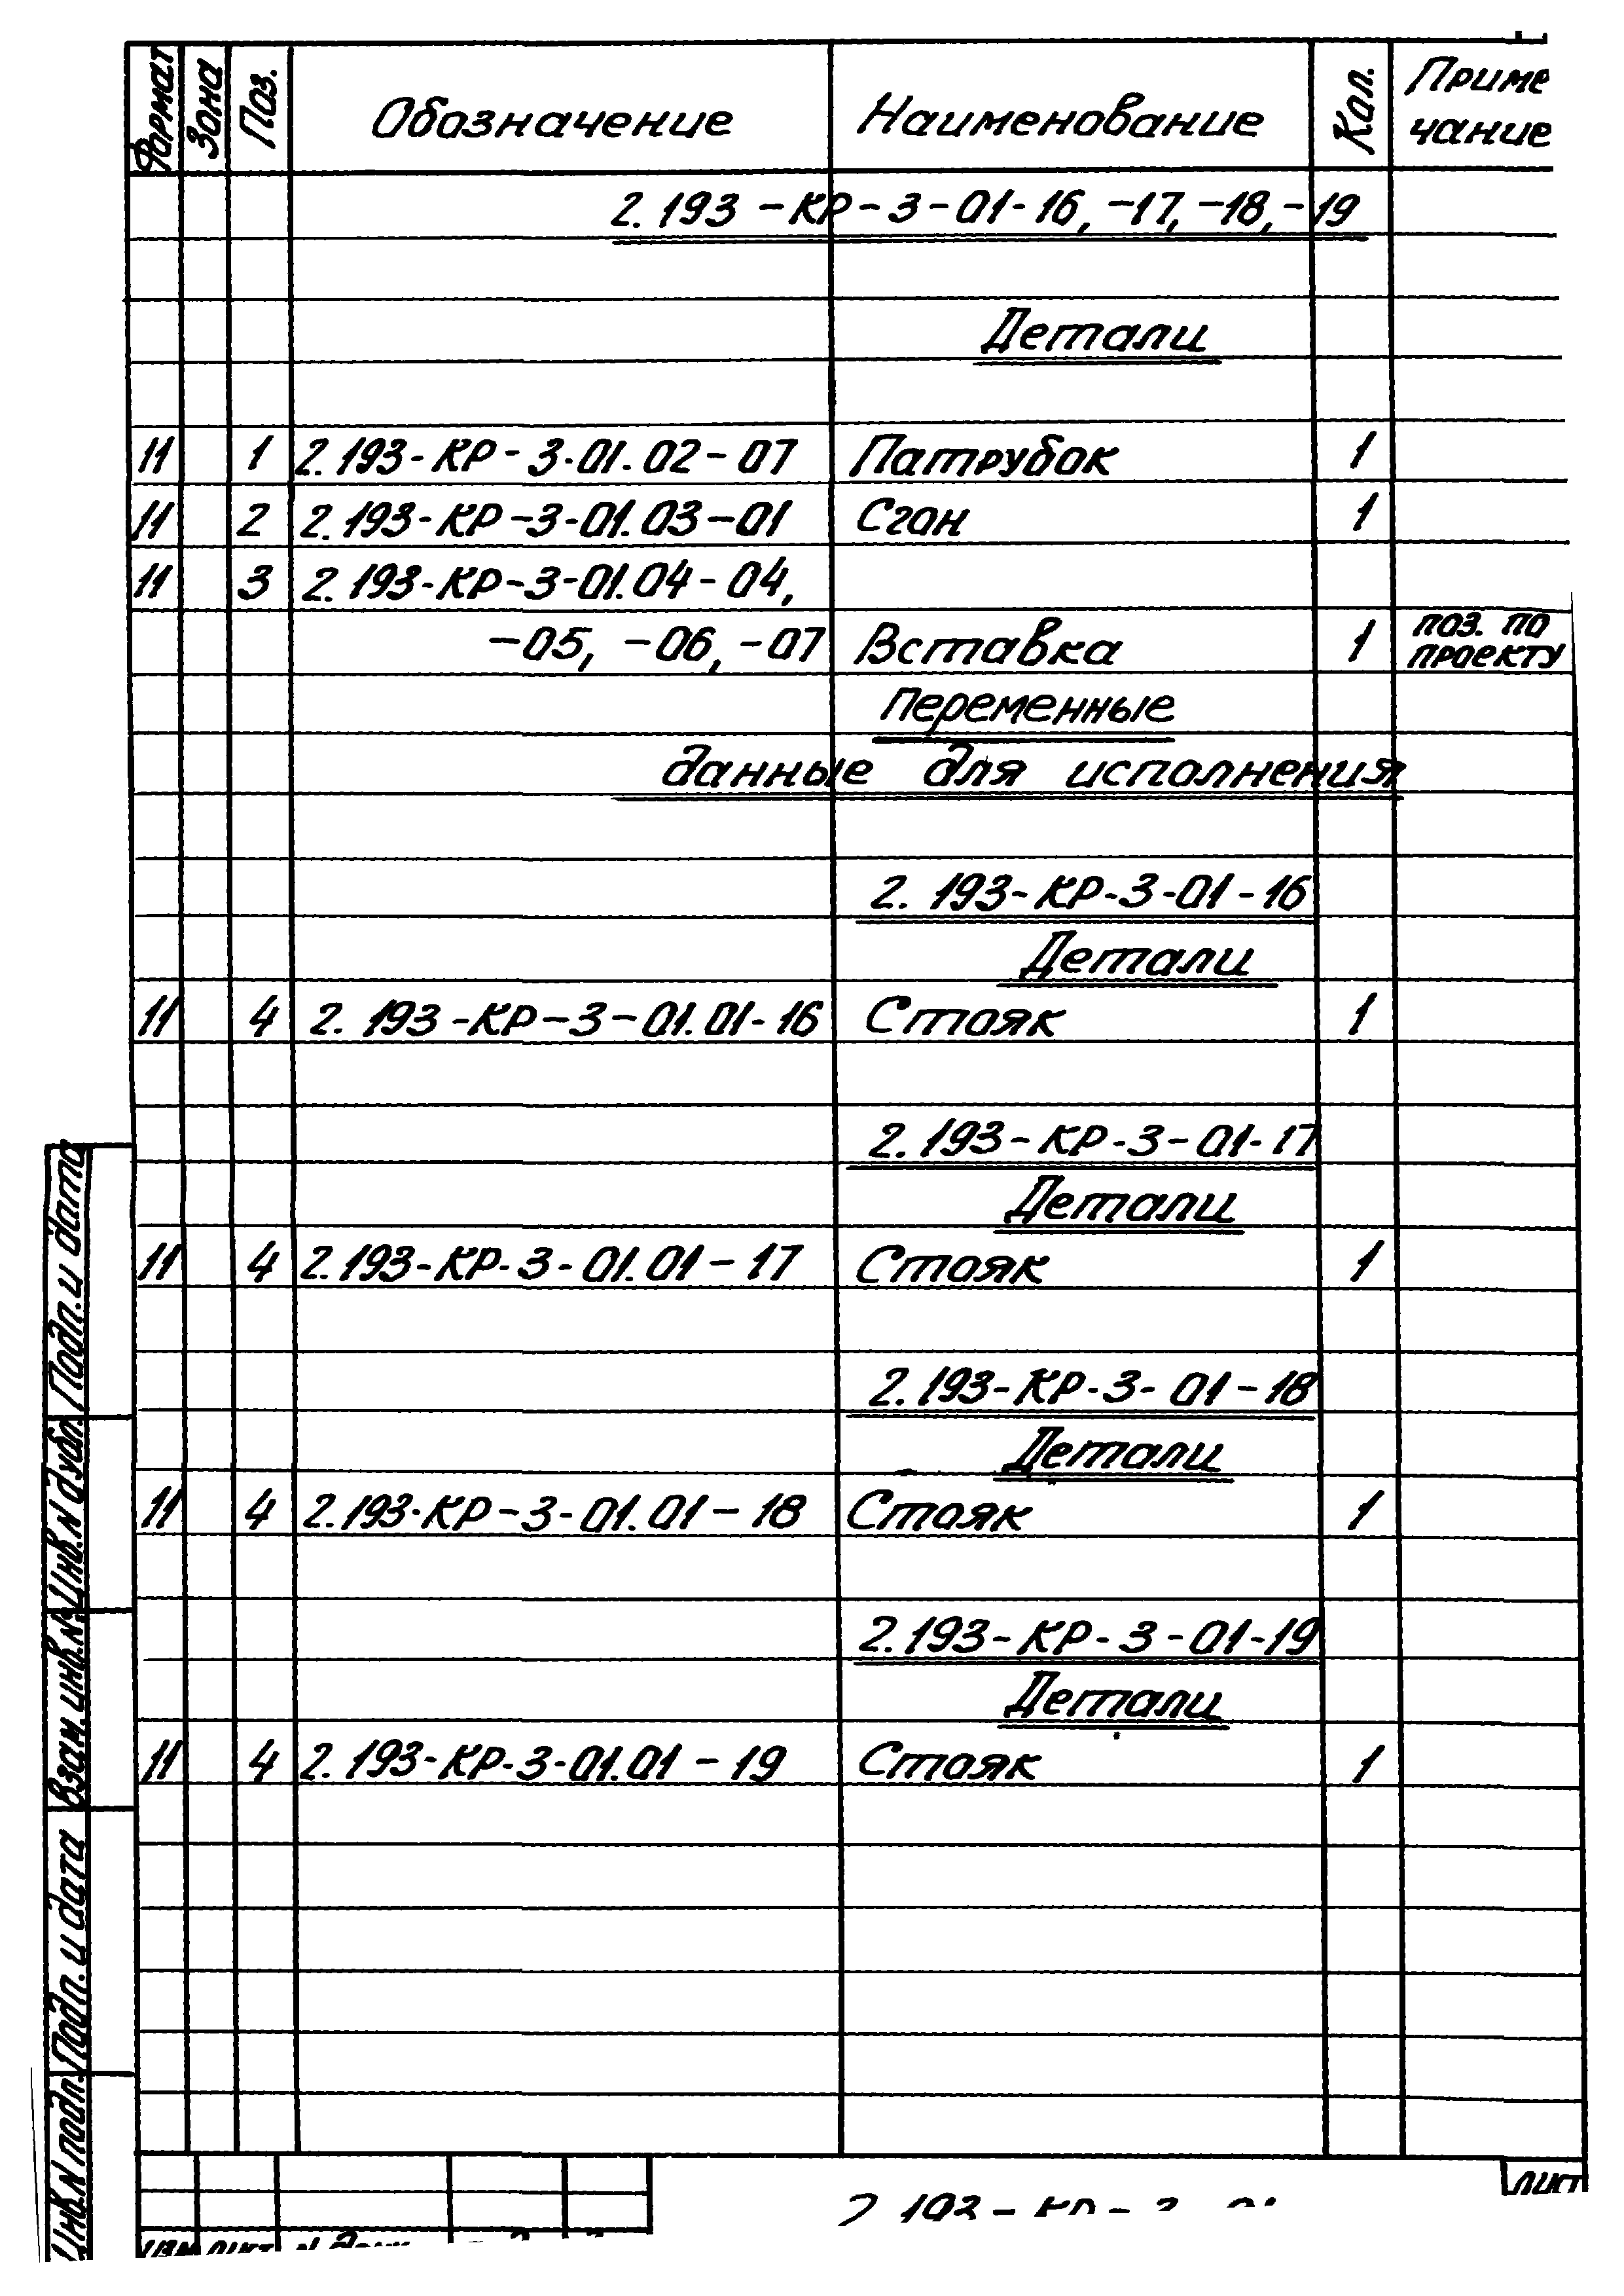 Формат Зона Поз. Обозначение Наименование Кол. Приме
чание
2.193-КР-3-01-16, -17, -18, -19
Детали
11 1 2.193-КР-3-01.02-07 Патрубок 1
11 2 2.193-КР-3-01.03-01 Сгон 1
11 3 2.193-КР-3-01.04-04,
-05, -06, -07 Вставка 1 поз. по
проекту
переменные
данные для исполнения
2.193-КР-3-01-16
Детали
11 4 2.193-КР-3-01.01-16 Стояк 1
2.193-КР-3-01-17
Детали
11 4 2.193-КР-3-01.01-17 Стояк 1
2.193-КР-3-01-18
Детали
11 4 2.193-КР-3-01.01-18 Стояк 1
2.193-КР-3-01-19
Детали
11 4 2.193-КР-3-01.01-19 Стояк 1
Подп. и дата
Инв. N дубл.
Взам. инв. N
Подп. и дата
Инв. N подл.
лист
2.193-КР-3-01